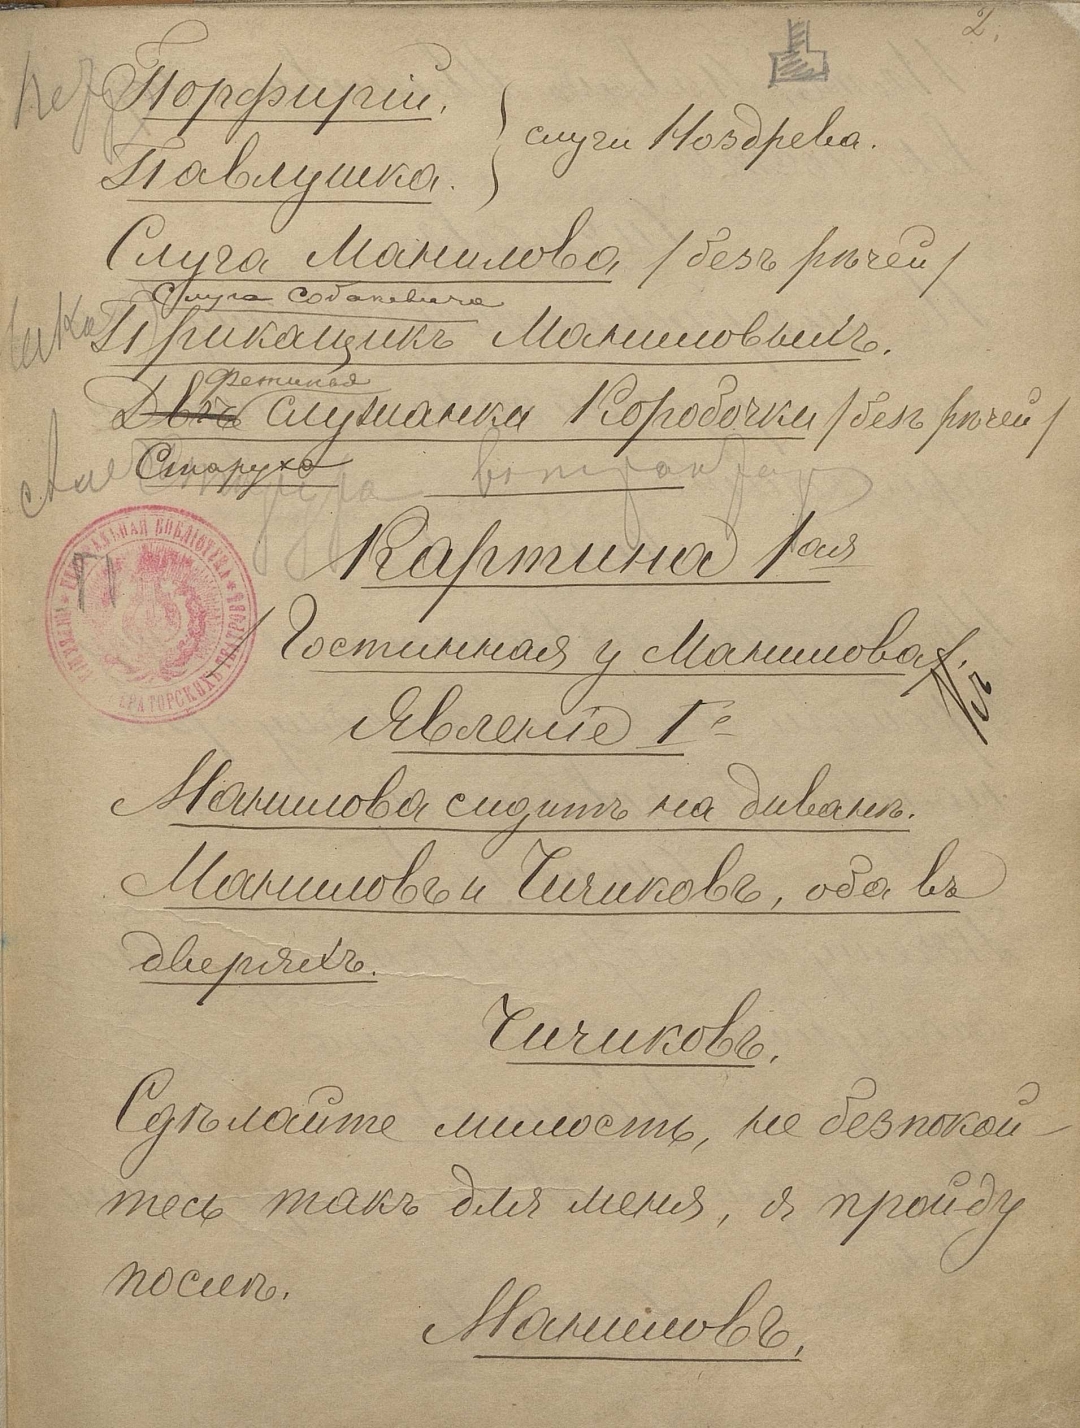 2.
Порфирій.
Павлушка.
слуги Ноздрева.
Слуга Манилова /безъ рѣчей/
Слуга Собакевича
Прикащикъ Маниловыхъ.
Фетинья
Двѣ служанка Коробочки /безъ рѣчей/
Старуха
Картина 1ая
/Гостинная у Манилова/.
Явленіе 1е
Манилова сидитъ на диванѣ.
Маниловъ и Чичиковъ, оба въ
дверяхъ.
Чичиковъ.
Сдѣлайте милость, не безпокой-
тесь такъ для меня, я пройду
послѣ.
Маниловъ.